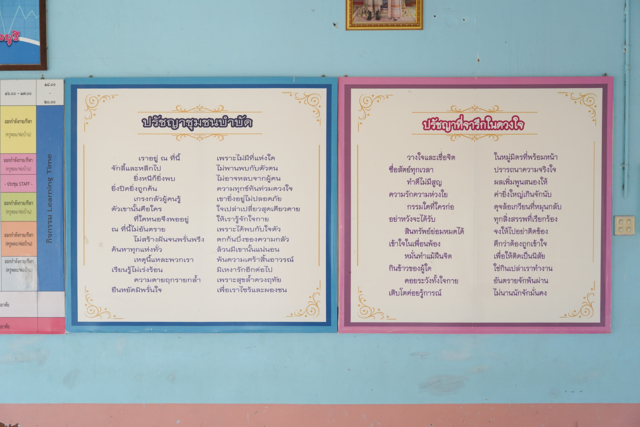 กิจกรรม Learning Time
- ประชุม STAFF -
ปรัชญาชุมชนบำบัด
เราอยู่ ณ ที่นี้ เพราะไม่มีที่แห่งใด
จักลี้และหลีกไป ไม่พานพบกับตัวตน
ยิ่งหนีก็ยิ่งพบ ไม่อาจหลบจากผู้คน
ยิ่งปิดยิ่งถูกค้น ความทุกข์ทันท่วมดวงใจ
เกรงกลัวผู้คนรู้ เขาซึ่งอยู่ไม่ปลอดภัย
ตัวเขานั้นคือใคร ใจเปล่าเปลี่ยวสุดเดียวดาย
ที่ใดหนอจึงพออยู่ ให้เรารู้จักใจกาย
ณ ที่นี้ไม่อันตราย เพราะได้พบกับใจตัว
ไม่สร้างฝันจนพรั่นพรึง ตกกันบึ้งของความกลัว
ค้นหาทุกแห่งทั่ว ล้วนมีเขานั้นแน่นอน
เหตุนี้แหละพวกเรา พ้นความเศร้าสิ้นอาวรณ์
เรียนรู้ไม่เร่งร้อน มีเหงารักอีกต่อไป
ความตายฤกรายกล้ำ เพราะสุขล้ำดวงฤทัย
ยืนหยัดมิพรั่นใจ เพื่อเราไซร้และผองชน
ปรัชญาที่จารึกในดวงใจ
วางใจและเชื่อจิต ในหมู่มิตรที่พร้อมหน้า
ซื่อสัตย์ทุกเวลา ปรารถนาความจริงใจ
ทำดีไม่มีสูญ ผลเพิ่มพูนสนองให้
ความรักความห่วงใย ค่ายิ่งใหญ่เกินจักนับ
กรรมใดที่ใครก่อ ดุจล้อเกวียนที่หมุนกลับ
อย่าหวังจะได้รับ ทุกสิ่งสรรพที่เรียกร้อง
สินทรัพย์ย่อมหมดได้ จงให้ไปอย่าติดข้อง
เข้าใจในเพื่อนพ้อง ดีกว่าต้องถูกเข้าใจ
หมั่นทำแม้ฝืนจิต เพื่อให้ติดเป็นนิสัย
กินข้าวของผู้ใด ใช้กินเปล่าเราทำงาน
คอยระวังทั้งใจกาย อันตรายจักพ้นผ่าน
เติบโตค่อยรู้การณ์ ไม่นานนักจักมั่นคง